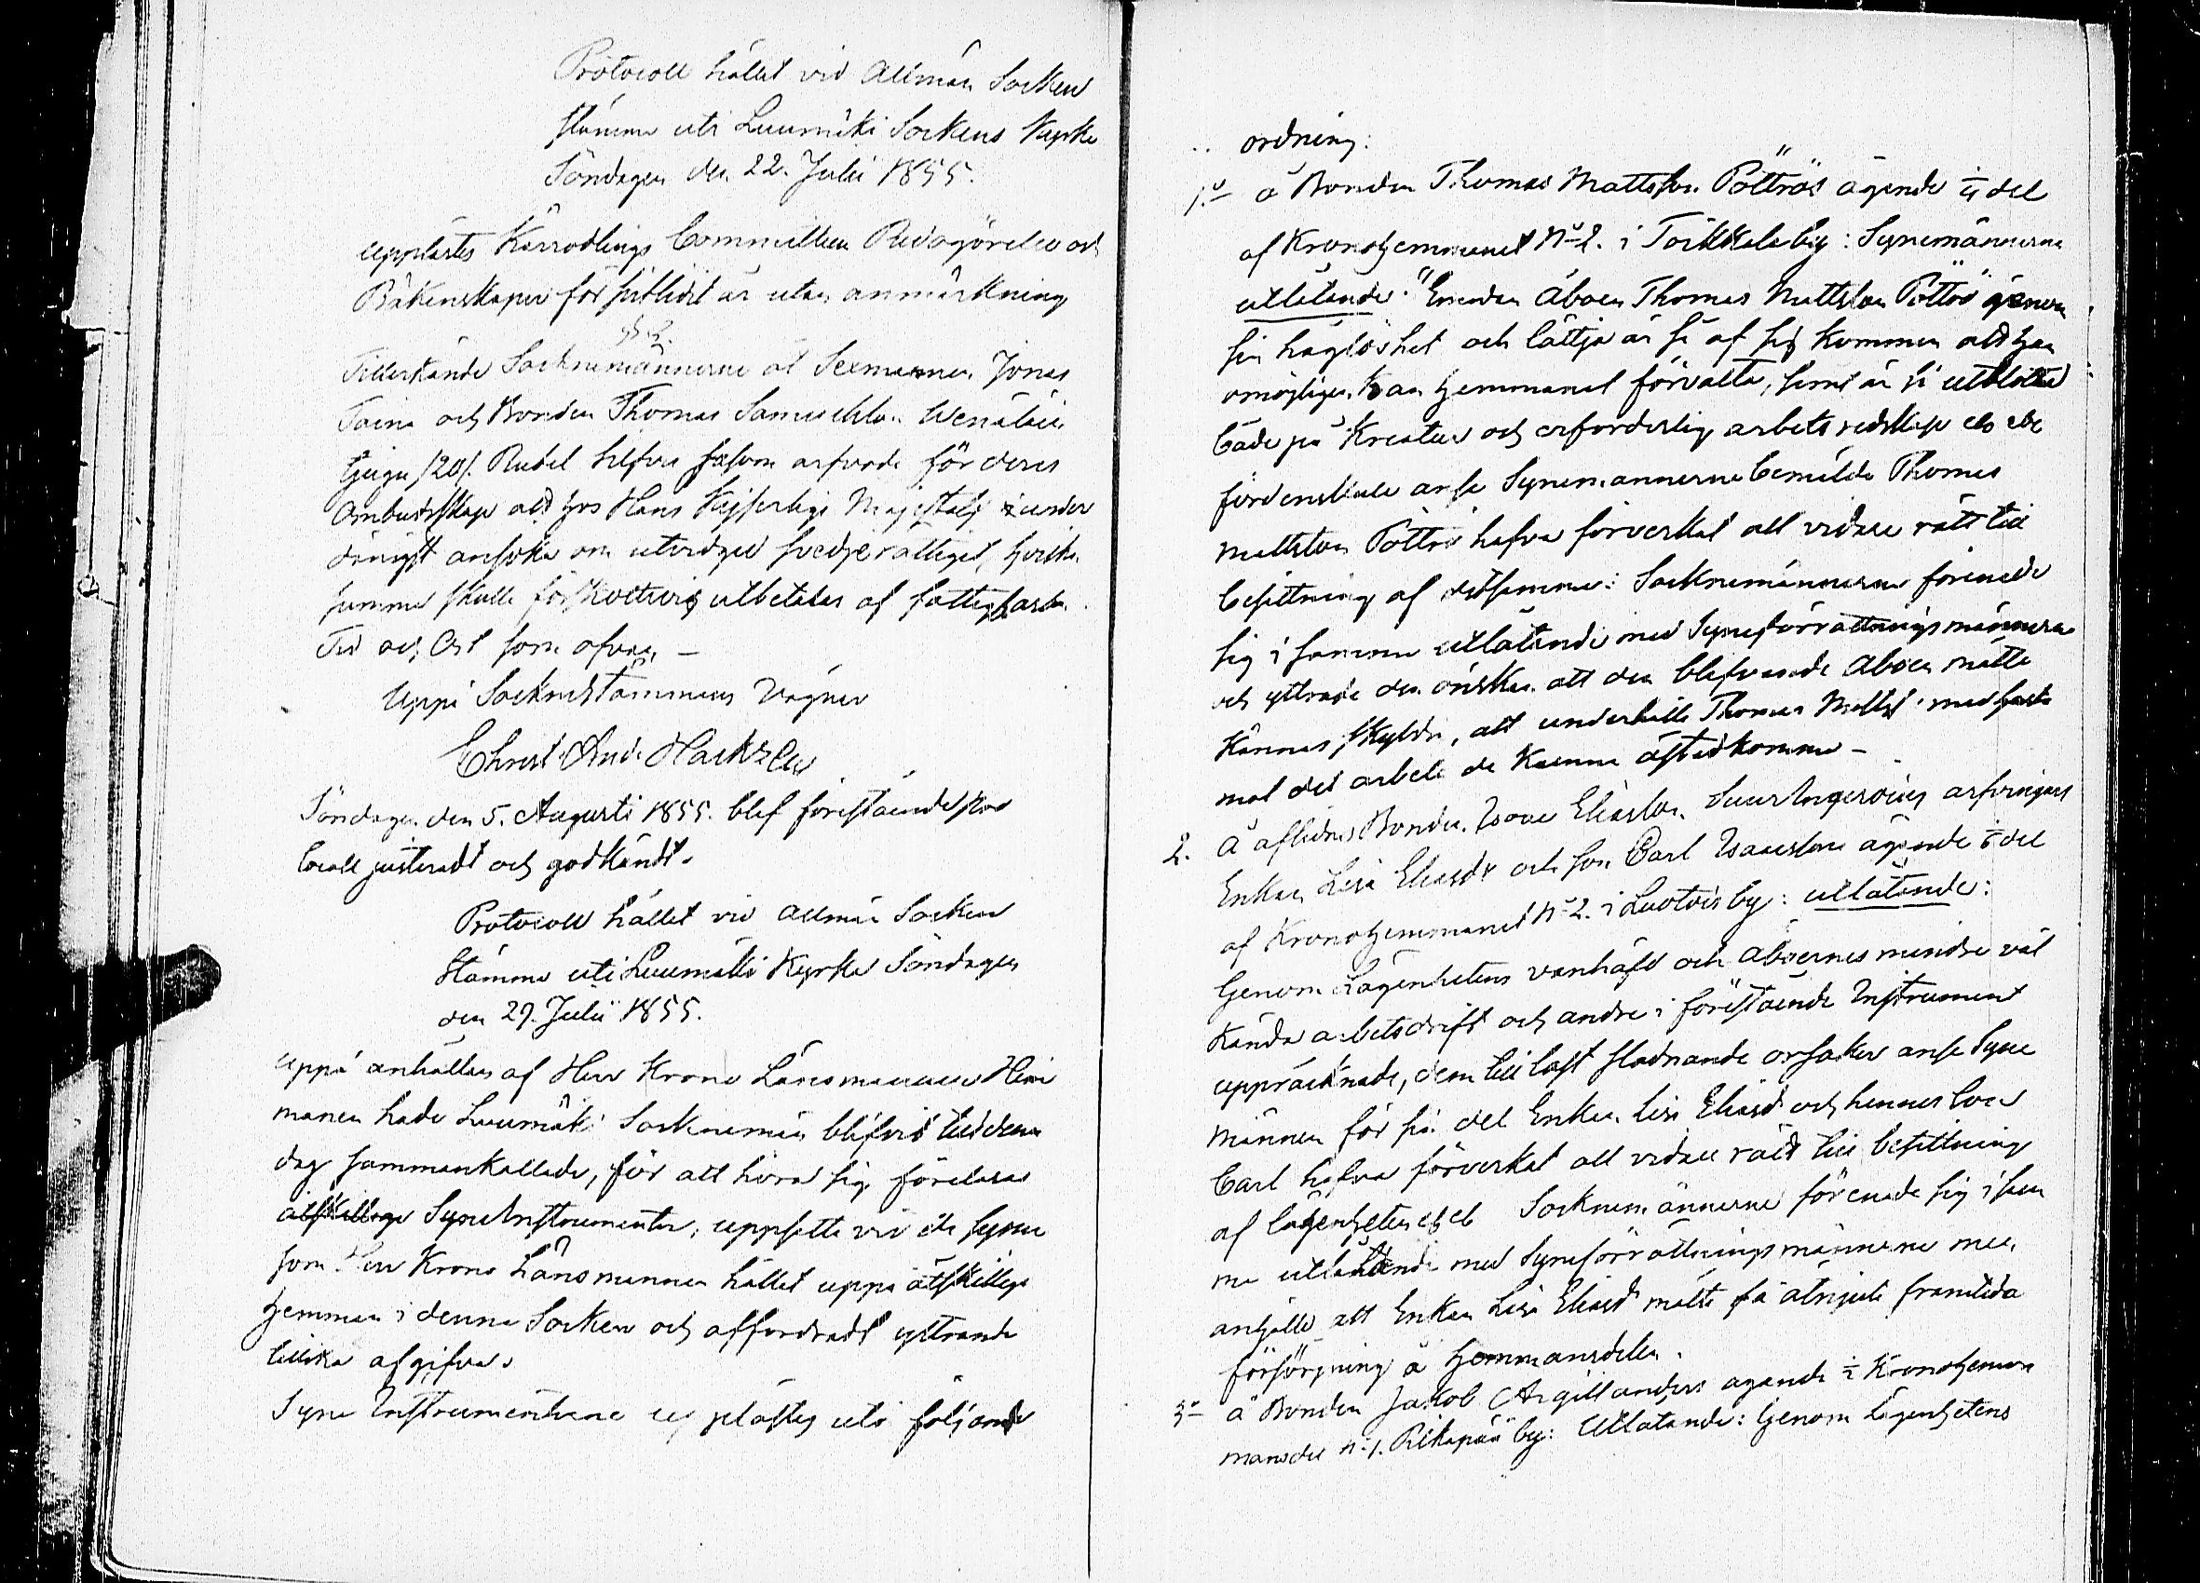 Protocoll hållet vid Allmän Socken
stämma uti Luumäki Sockens Kyrka
Söndagen den 22. Julii 1855.
upplästes Kärrodlings Committeen Redogörelse och
Räkenskaper för sistlidit år utan anmärkning
§ 2.
Tillerkände Socknemännerne åt Sexmannen Jonas
Taina och Bonden Thomas Samuelsson
tjugu /20/. Rubel Silfver såsom arfvode för deras
Ombudsskap att hos Hans Kejserliga Majestät i under
dånigst ansöka om utvidgad svedjerättighet, hvilken
summa skulle förskottsvis utbetalas af fattigkassan.
Tid och Ort som ofvan –
Uppå Socknestämmans Vägnar
Christ. And. Hackzell
Söndagen den 5. Augusti 1855. blef förestående Pro
tocoll justeradt och godkändt.
Protocoll hållet vid allmän Socken
Stämma uti Luumäki Kyrka Söndagen
den 29. Julii 1855.
uppå anhållan af Herr Krono Länsmannen Hei
manen hade Luumäki Socknemän blifvit till denna
dag sammankallade, för att höra sig föreläsas
åtskillige Syne Instrumenter, uppsatte vid de syner
som Herr Krono Länsmannen hållet uppå åtskillige
Hemman i denna Socken och affordradt yttrande
tillika afgifva.
Syne Instrumenterne upplästes uti följande
ordning:
1:o å Bonden Thomas Mattsson Pöttrös ägande 1/4 del
af Kronohemmanet No 2. i Toikkala by: Synemännerne
utlåtande: "Emedan Åboen Thomas Mattsson Pöttrö genom
sin håglöshet och lättja är så af sig kommen att han
omöjligen kan hemmanet förvalta, samt är så utblottad
både på Kreatur och erforderlig arbets redskap etc etc
fördenskull anse Synemännerne bemälde Thomas
Mattsson Pöttrö hafva förverkat all vidare rätt till
besittning af detsamma: Socknemännerne förenade
sig i samma utlåtande med Syneförrättningsmännerne
och yttrade den önskan att den blifvande Åboen måtte
kännas skyldig, att underhålla Thomas Mattss. med hustru
mot det arbete de kunna åstadkomma –
2. Å aflidne Bonden Isaac Eliasson Suur Ingeroinens arfvingars
Enkan Lisa Eliasdr och son Carl Isaacssons ägande 1/6 del
af Kronohemmanet No 2. i Luotois by: utlåtande:
Genom Lägenhetens vanhäfd och åboernes mindre väl
kända arbetsdrift och andre i förestående Instrument
uppräknade, dem till last stadnande orsaker anse Syne
männen för sin del Enkan Lisa Eliasdr och hennes Son
Carl hafva förverkat all vidare rätt till besittning
af lägenheten etc etc Socknemännerne förenade sig i sam
ma utlåtande med Syneförrättningsmännerne men
anhålla att Enkan Lisa Eliasdr måtte få åtnjuta framtida
försörjning å Hemmansdelen.
3:o å Bonden Jakob Argillanders ägande 1/2 Kronohemm
mansdel No 1. Pitkäpää by: Utlåtande: Genom Lägenhetens